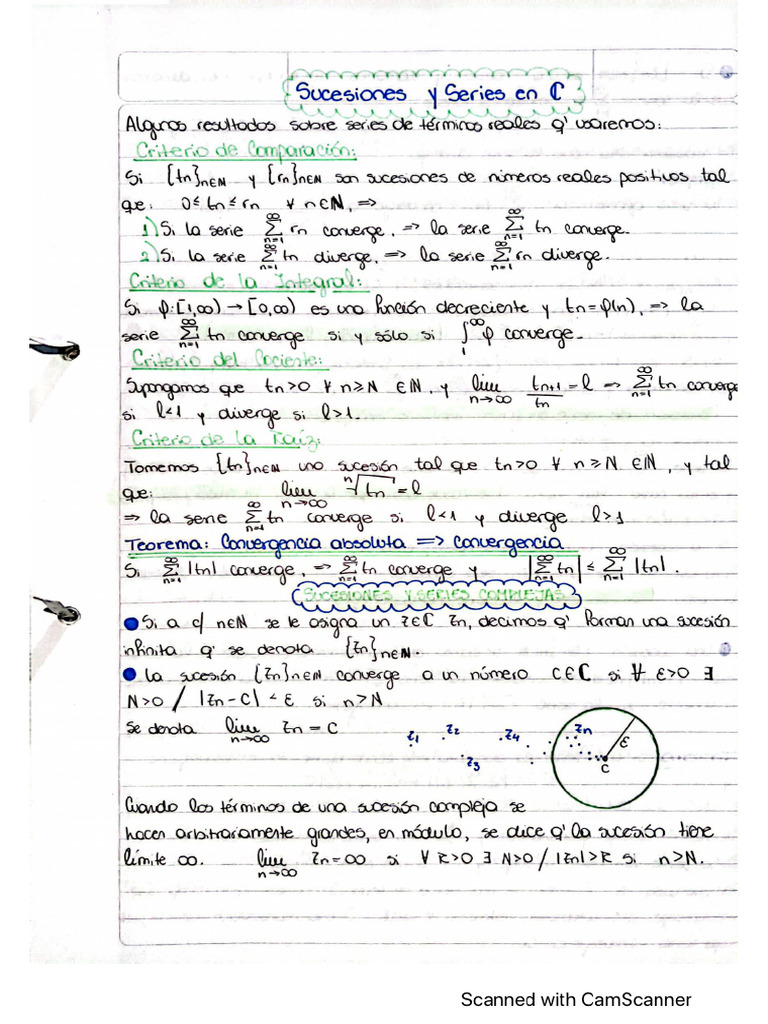 Sucesiones y Series en ℂ
Algunos resultados sobre series de términos reales q' usaremos:
Criterio de Comparación:
Si {tn}n∈ℕ y {rn}n∈ℕ son sucesiones de números reales positivos tal
que: 0≤tn≤rn ∀ n∈ℕ, =>
1) Si la serie ∞∑n=1 rn converge, => la serie ∞∑n=1 tn converge.
2) Si la serie ∞∑n=1 tn diverge, => la serie ∞∑n=1 rn diverge.
Criterio de la Integral:
Si φ:[1,∞) → [0,∞) es una función decreciente y tn=φ(n), => la
serie ∞∑n=1 tn converge si y sólo si ∫1^∞ φ converge.
Criterio del Cociente:
Supongamos que tn>0 ∀ n≥N ∈ℕ, y lim n→∞ tn+1/tn = l => ∞∑n=1 tn converge
si l<1 y diverge si l>1.
Criterio de la Raíz:
Tomemos {tn}n∈ℕ una sucesión tal que tn>0 ∀ n≥N ∈ℕ, y tal
que: lim n→∞ ⁿ√tn = l
=> la serie ∞∑n=1 tn converge si l<1 y diverge l>1
Teorema: Convergencia absoluta => convergencia
Si ∞∑n=1 |tn| converge, => ∞∑n=1 tn converge y |∞∑n=1 tn| ≤ ∞∑n=1 |tn|.
SUCESIONES Y SERIES COMPLEJAS
• Si a c/ n∈ℕ se le asigna un z∈ℂ zn, decimos q' forman una sucesión
infinita q' se denota {zn}n∈ℕ.
• La sucesión {zn}n∈ℕ converge a un número C∈ℂ si ∀ ε>0 ∃
N>0 / |zn-C| < ε si n>N
Se denota lim n→∞ zn = C
z1 z2 z3 z4 zn ε C
Cuando los términos de una sucesión compleja se
hacen arbitrariamente grandes, en módulo, se dice q' la sucesión tiene
límite ∞. lim n→∞ zn=∞ si ∀ R>0 ∃ N>0 / |zn|>R si n>N.
Scanned with CamScanner